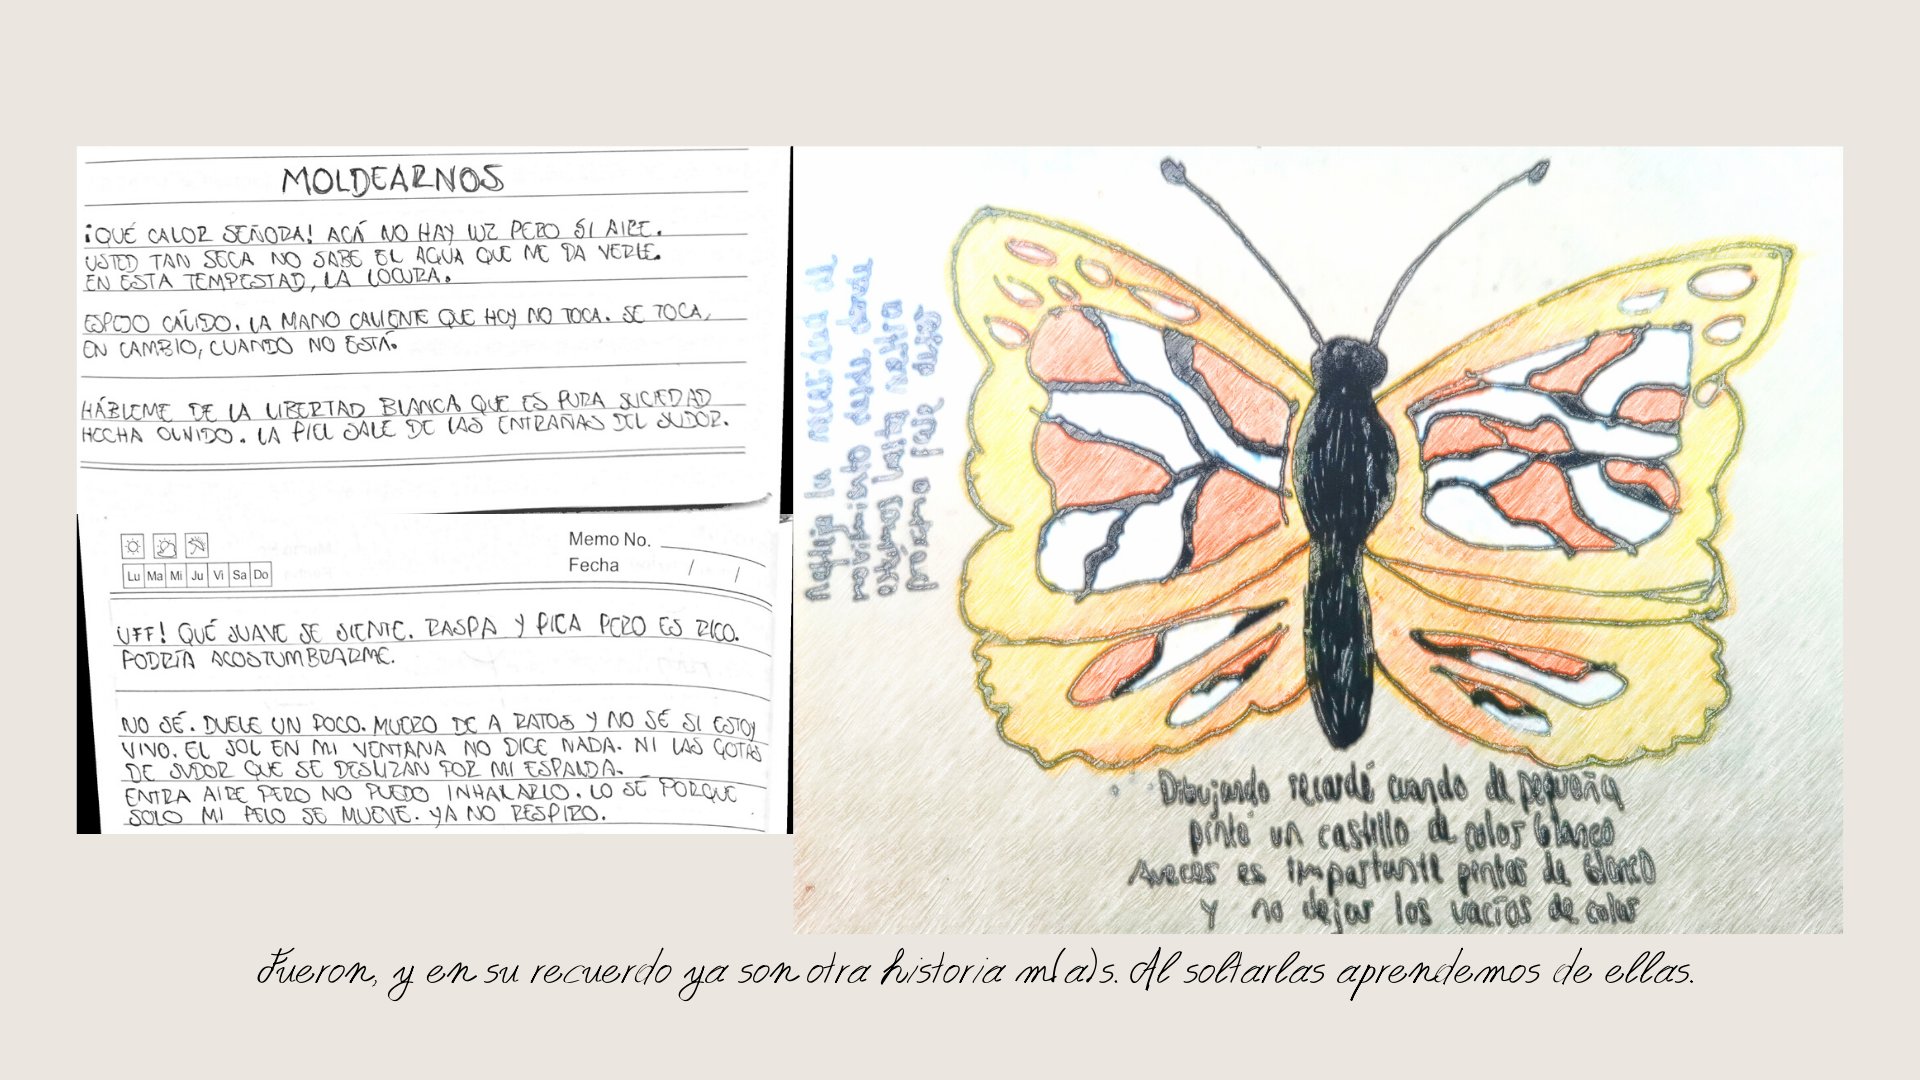 MOLDEARNOS
¡QUÉ CALOR SEÑORA! ACÁ NO HAY LUZ PERO SI AIRE.
USTED TAN SECA NO SABE EL AGUA QUE ME DA VERLE.
EN ESTA TEMPESTAD, LA LOCURA.
ESPEJO CÁLIDO. LA MANO CALIENTE QUE HOY NO TOCA. SE TOCA,
EN CAMBIO, CUANDO NO ESTÁ.
HÁBLEME DE LA LIBERTAD BLANCA QUE ES PURA SUCIEDAD
HECHA OLVIDO. LA PIEL SALE DE LAS ENTRAÑAS DEL SUDOR.
Memo No.
Fecha / /
Lu Ma Mi Ju Vi Sa Do
UFF! QUÉ SUAVE SE SIENTE. RASPA Y PICA PERO ES RICO.
PODRÍA ACOSTUMBRARME.
NO SÉ. DUELE UN POCO. MUERO DE A RATOS Y NO SÉ SI ESTOY
VIVO. EL SOL EN MI VENTANA NO DICE NADA. NI LAS GOTAS
DE SUDOR QUE SE DESLIZAN POR MI ESPALDA.
ENTRA AIRE PERO NO PUEDO INHALARLO. LO SÉ PORQUE
SOLO MI PELO SE MUEVE. YA NO RESPIRO.
la
movimiento desde donde
estamos
para dejar
Dibujando recordé cuando de pequeña
pinté un castillo de color blanco
Aveces es importante pintar de blanco
y no dejar los vacíos de color
Fueron, y en su recuerdo ya son otra historia m(a)s. Al soltarlas aprendemos de ellas.